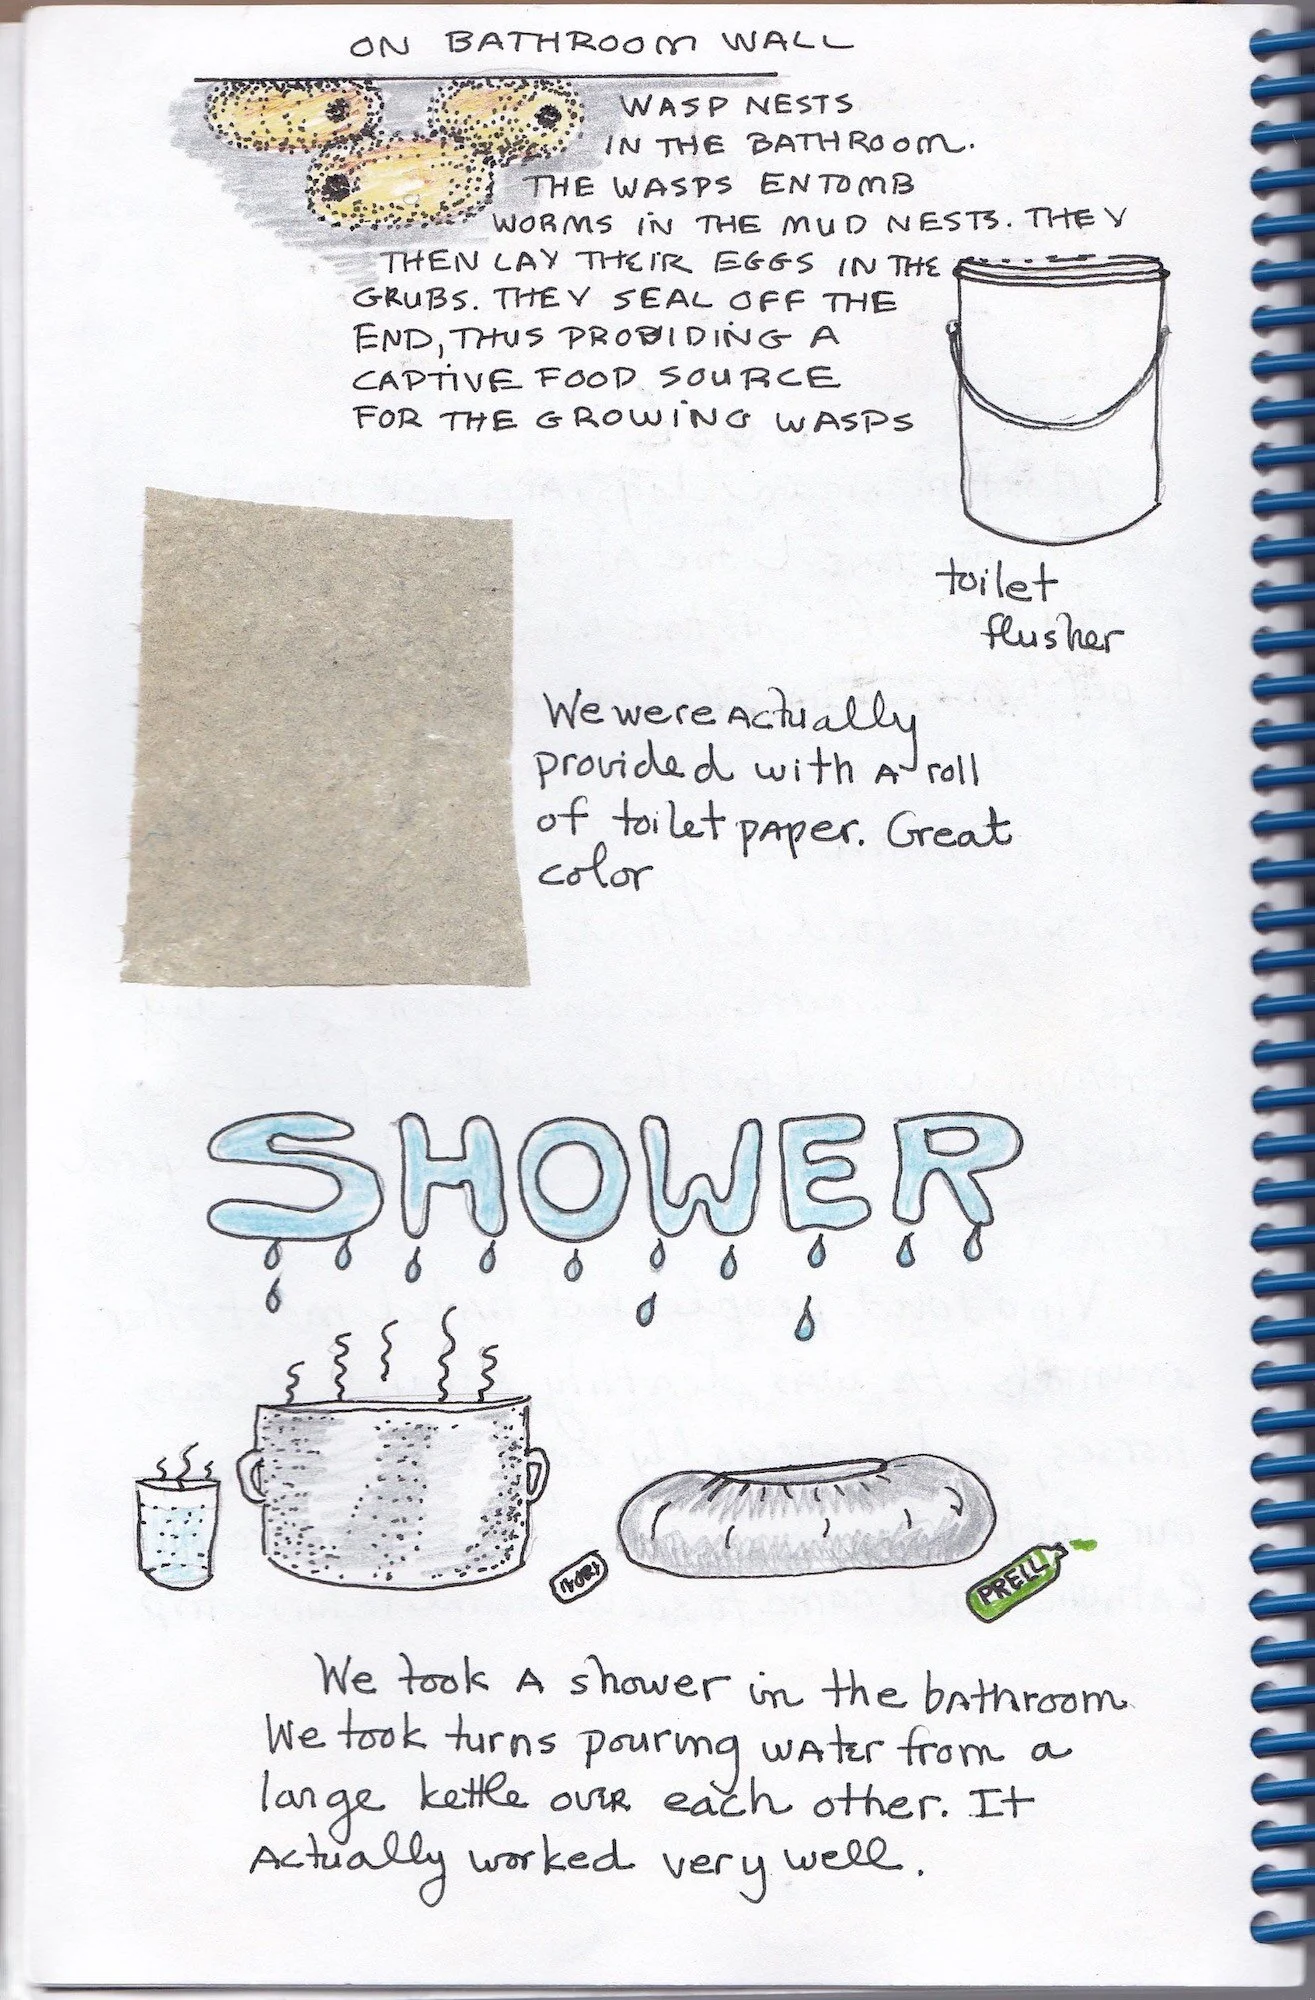 ON BATHROOM WALL
WASP NESTS
IN THE BATHROOM.
THE WASPS ENTOMB
WORMS IN THE MUD NESTS. THEY
THEN LAY THEIR EGGS IN THE
GRUBS. THEY SEAL OFF THE
END, THUS PROVIDING A
CAPTIVE FOOD SOURCE
FOR THE GROWING WASPS
toilet
flusher
We were Actually
provided with A roll
of toilet pAper. Great
color
SHOWER
PRELL
We took A shower in the bAthroom
We took turns pouring wAter from a
large kettle over each other. It
Actually worked very well.